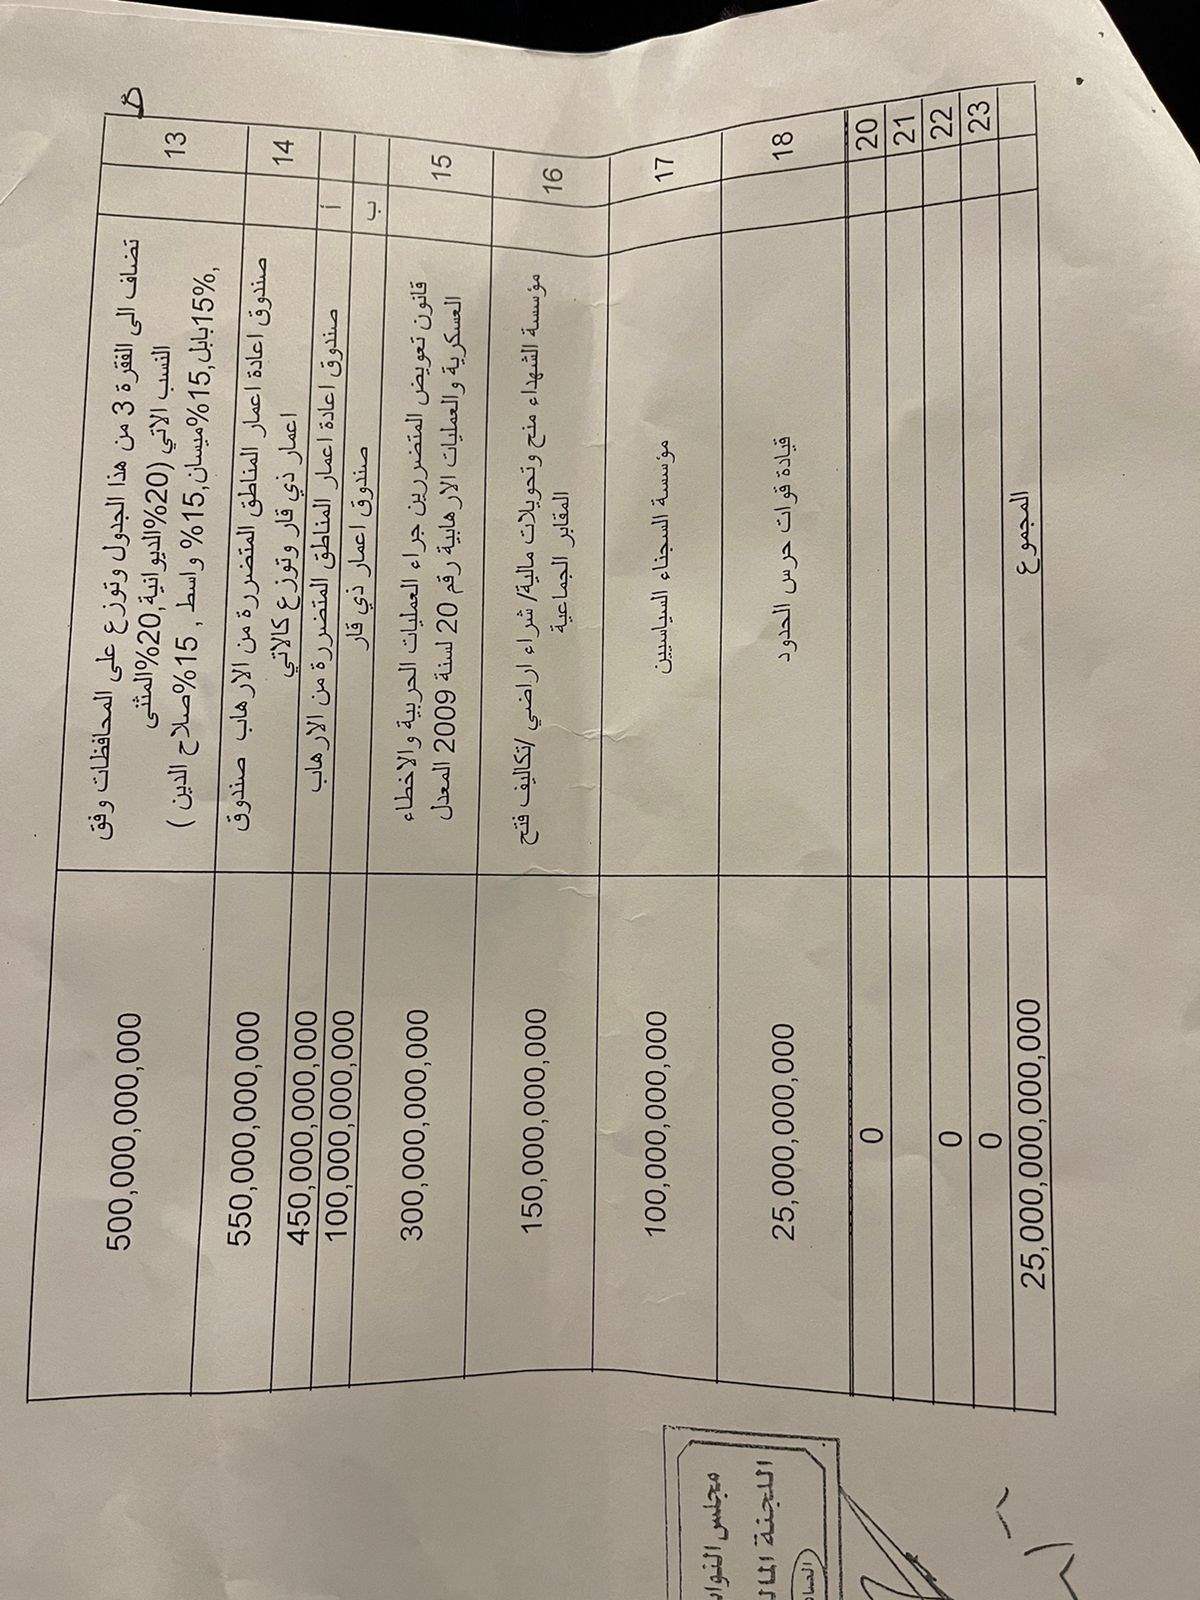 13 تضاف الى الفقرة 3 من هذا الجدول وتوزع على المحافظات وفق 500,000,000,000
النسب الاتي (20%الديوانية,20%المثنى
,15%بابل,15%ميسان,15% واسط , 15%صلاح الدين )
14 صندوق اعادة اعمار المناطق المتضررة من الارهاب صندوق 550,000,000,000
اعمار ذي قار وتوزع كالاتي
أ صندوق اعادة اعمار المناطق المتضررة من الارهاب 450,000,000,000
ب صندوق اعمار ذي قار 100,000,000,000
15 قانون تعويض المتضررين جراء العمليات الحربية والاخطاء 300,000,000,000
العسكرية والعمليات الارهابية رقم 20 لسنة 2009 المعدل
16 مؤسسة الشهداء منح وتحويلات مالية/ شراء اراضي /تكاليف فتح 150,000,000,000
المقابر الجماعية
17 مؤسسة السجناء السياسيين 100,000,000,000
18 قيادة قوات حرس الحدود 25,000,000,000
20 0
21
22 0
23 0
المجموع 25,000,000,000,000
مجلس النواب
اللجنة المال